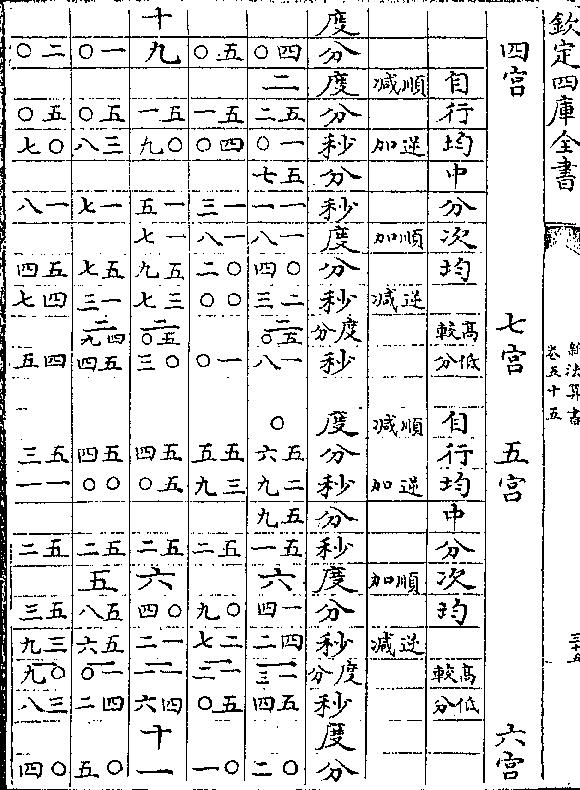 欽定四庫全書
新法算書
卷五十五
四宮 七宮 五宮 六宮
自行均 中分 次均 高低較分 自行均 中分 次均 高低較分
順減 逆加 順加 逆減 順減 逆加 順加 逆減
度分 度分秒 分秒 度分秒 度分秒 度分秒 分秒 度分秒 度分秒 度分
四〇 二 五二 一〇 五七 一一 一八 〇四 二三 二五〇 一八 〇 五六 二九 五九 五一 六 一四 四二 一一三 五四 〇二
五〇 五一 四〇 一三 一八 〇二 〇〇 一〇 五五 三九 五二 〇九 二七 一一二 五〇 〇一
十九 五一 〇九 一五 一七 五九 三七 二五〇 〇三 五四 五〇 五二 六 〇四 一二 一一一 四六 十一
一〇 五〇 三八 一七 五七 一三 二四九 五四 五四 〇〇 五二 五 五八 五六 一一〇 四二 〇五
二〇 五〇 〇七 一八 五四 四七 四五 五三 一一 五二 五三 三九 一〇九 三八 〇四